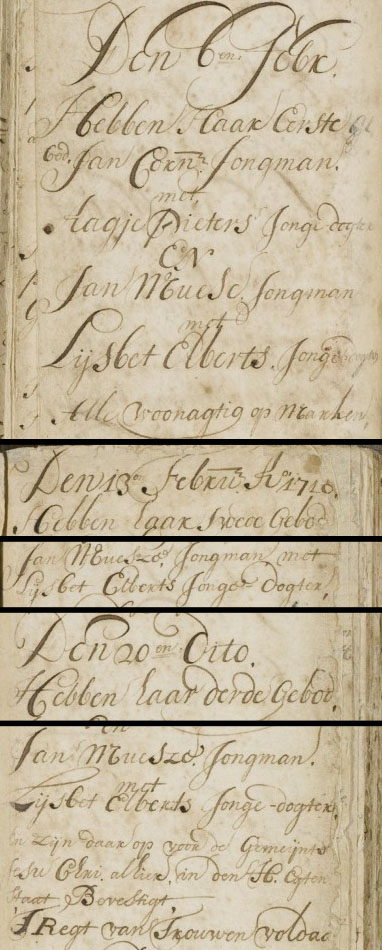 Den 6 en: Febr.
Hebben Haar Eerste
God. Jan Corn:z Jongman.
met
Aagje Pieters Jonge dogter
EN
Jan Muesz. Jongman
met
Lijsbet Elberts. Jonge dogter
Alle woonagtig op Marken.
Den 13 Febru: Ao 1710.
Hebben haar twede Gebod
Jan Muesze. Jongman met
Lijsbet Elberts Jonge Dogter,
Den 20 en Dito.
Hebben haar derde Gebod.
En
Jan Muesze. Jongman.
met
Lijsbet Elberts Jonge-dogter,
en zijn daar op voor de Gemeijnte
Jesu Chri. alhier, in den H. Egten
Staat, Bevestigt.
't Regt van Trouwen voldaa